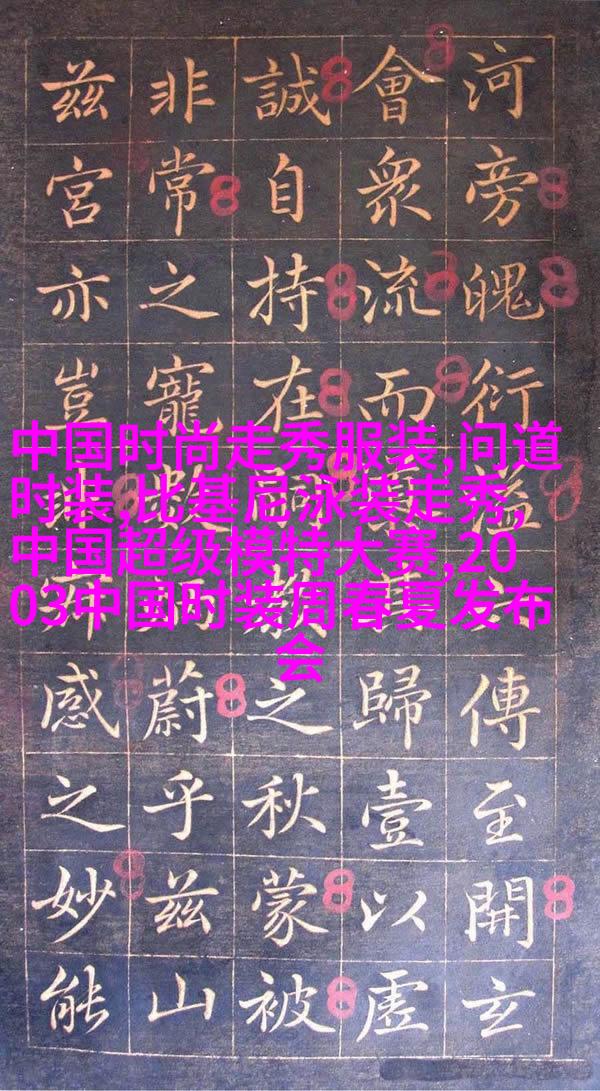 河旁魄衍溢傳至開玄
會衆流而歸壹以虛
誠自持在之秋蒙被
非常之寵蔚乎兹山
兹宮亦豈感之妙能
中国时尚走秀服装,问道
时装,比基尼泳装走秀,
中国超级模特大赛,20
03中国时装周春夏发布
会